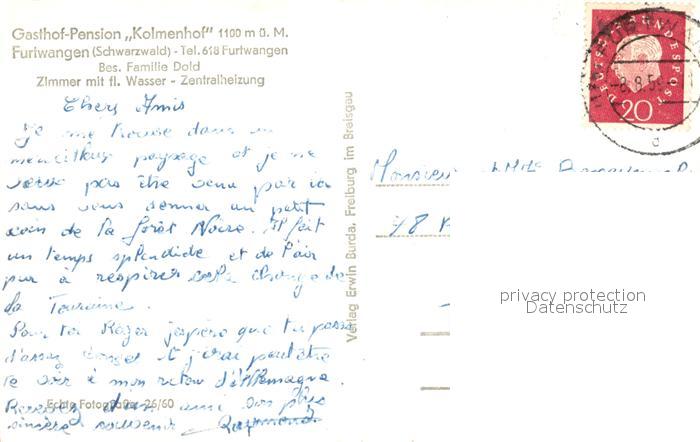 Gasthof-Pension „Kolmenhof" 1100 m ü. M.
Furtwangen (Schwarzwald) - Tel. 618 Furtwangen
Bes. Familie Dold
Zimmer mit fl. Wasser - Zentralheizung
Chers Amis
Je me trouve dans un
merveilleux paysage et je ne
pas être venu par ici
sans vous donner un petit
coin de la forêt Noire. Il fait
un temps splendide et de l'air
pur à respirer cela change de
la Touraine.
Pour toi Roger j'espère que tu passes
d'assez et j'irai peut être
te voir à mon retour d'Allemagne.
Recevez ami vos plus
sincère souvenir Raymond
Echte Fotografie 26/60
Verlag Erwin Burda, Freiburg im Breisgau
DEUTSCHE BUNDESPOST
20
8.8.5
d
Monsieur
48
privacy protection
Datenschutz